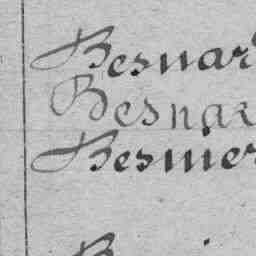 Besnar
Besnar
Besnier